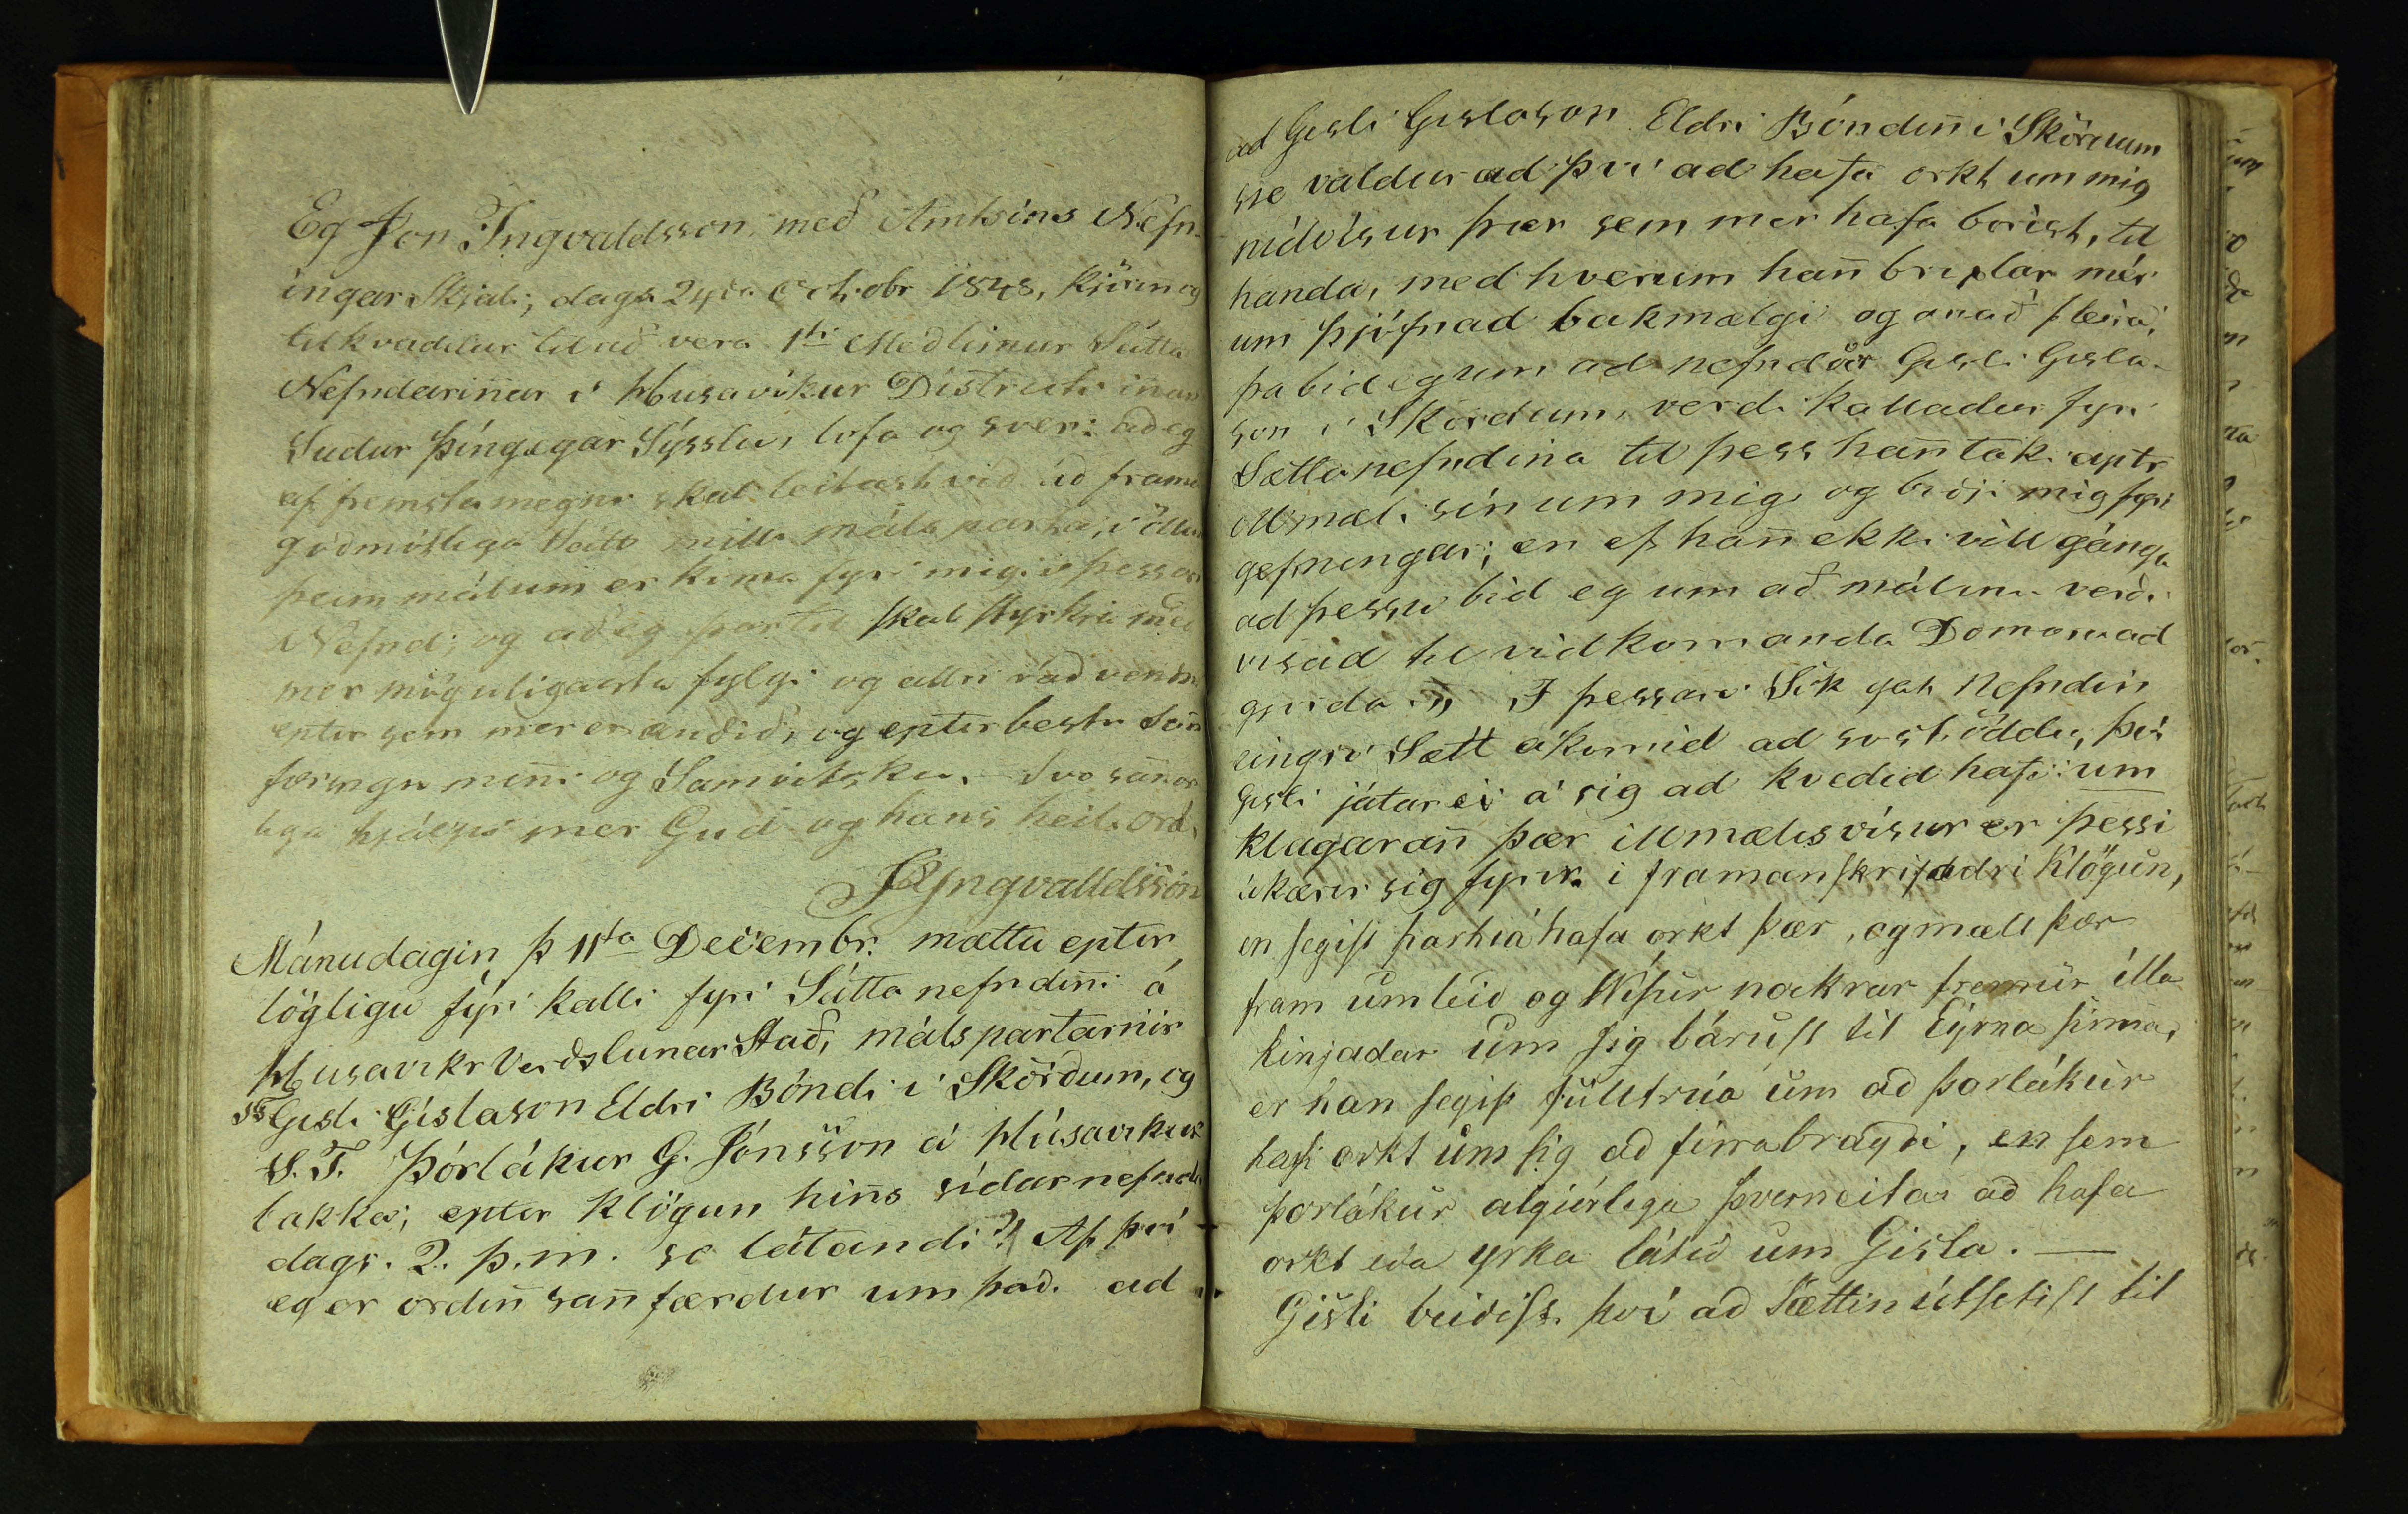 Eg Jon Ingvaldsson með Amtsins Nefn-
ingar Skjali, dags 24da Octobr 1848, kjörin̄ og
tilkvaddur til að vera 1ti Meðlimur Sátta
Nefndarin̄ar i Húsavíkur Districti in̄an
Sudur Þíngeyar Sýsslu, lofa og sver: að eg
af fremsta megni skal leitast við að frama
goðmótlega Sátt milli máls parta, i öllu
þeim málum er koma fyri mig i þessari
Nefnd; og að eg þartil skal styrkia með
mer möguligasta fylgi og allri ráðvendni
eptir sem mer er auðið, og eptir bestu San̄
færingu min̄i og Samvitsku. Svo san̄ar
lega hjálpi mer Gud og hans heil. orð,
JIngvalldsson
Mánudagin þ 11ta Decembr. mættu eptir
lögligu fyri kalli fyri Sátta nefndin̄i á
Húsavíkr Verdslunar Stað, málspartarnir
Ss Gisli Gíslason Eldri Bóndi i Skörðum, og
S. T. Þórlákur G. Jónsson á Húsavíkur
bakka; eptir klögun hin̄s sídarnefnda
dags. 2. þ. m. so látandi: "Af því
eg er ordin̄ san̄færdur um það. ad
ad Gisli Gislason Eldri Bóndin̄ i Skörðum
sie valdur ad því ad hafa orkt um mig
nídvísur þær sem mer hafa borist, til
handa, med hverium han̄ brixlar mér
um þjófnad bakmælgi og an̄að fleira,
þa bid eg um ad nefndur Gisli Gisla-
son i Skördum, verdi kalladur fyri
Sættanefndina til þess han̄ taki aptr
illmæli sín um mig og biðji mig fyri
gefningar; en ef han̄ ekki vill gánga
ad þessu bid eg um að málinu verði
visad til vidkomanda Domara ad
giöra." I þessari Sök gat Nefndin
eingri Sætt ákomid ad svo stöddu, þvi
Gisli játar ei á sig ad kvedid hafi um
klagaran̄ þær illmælisvísur er þessi
ákærir sig fyrir i framanskrifadri Klögun,
en segist þarhiá hafa orkt þær, og mællt þær
fram um leið og Vísur nockrar fremur illa
kinjadar um sig bárust til Eyrna sinna,
er han segist fulltrúa um að Þorlákur
hafi orkt um sig ad firrabragdi, en sem
Þorlákur algiörlega þverneitar að hafa
orkt eða yrka látið um Gisla. —
Gísli beiðist því að Sættin útsetist til